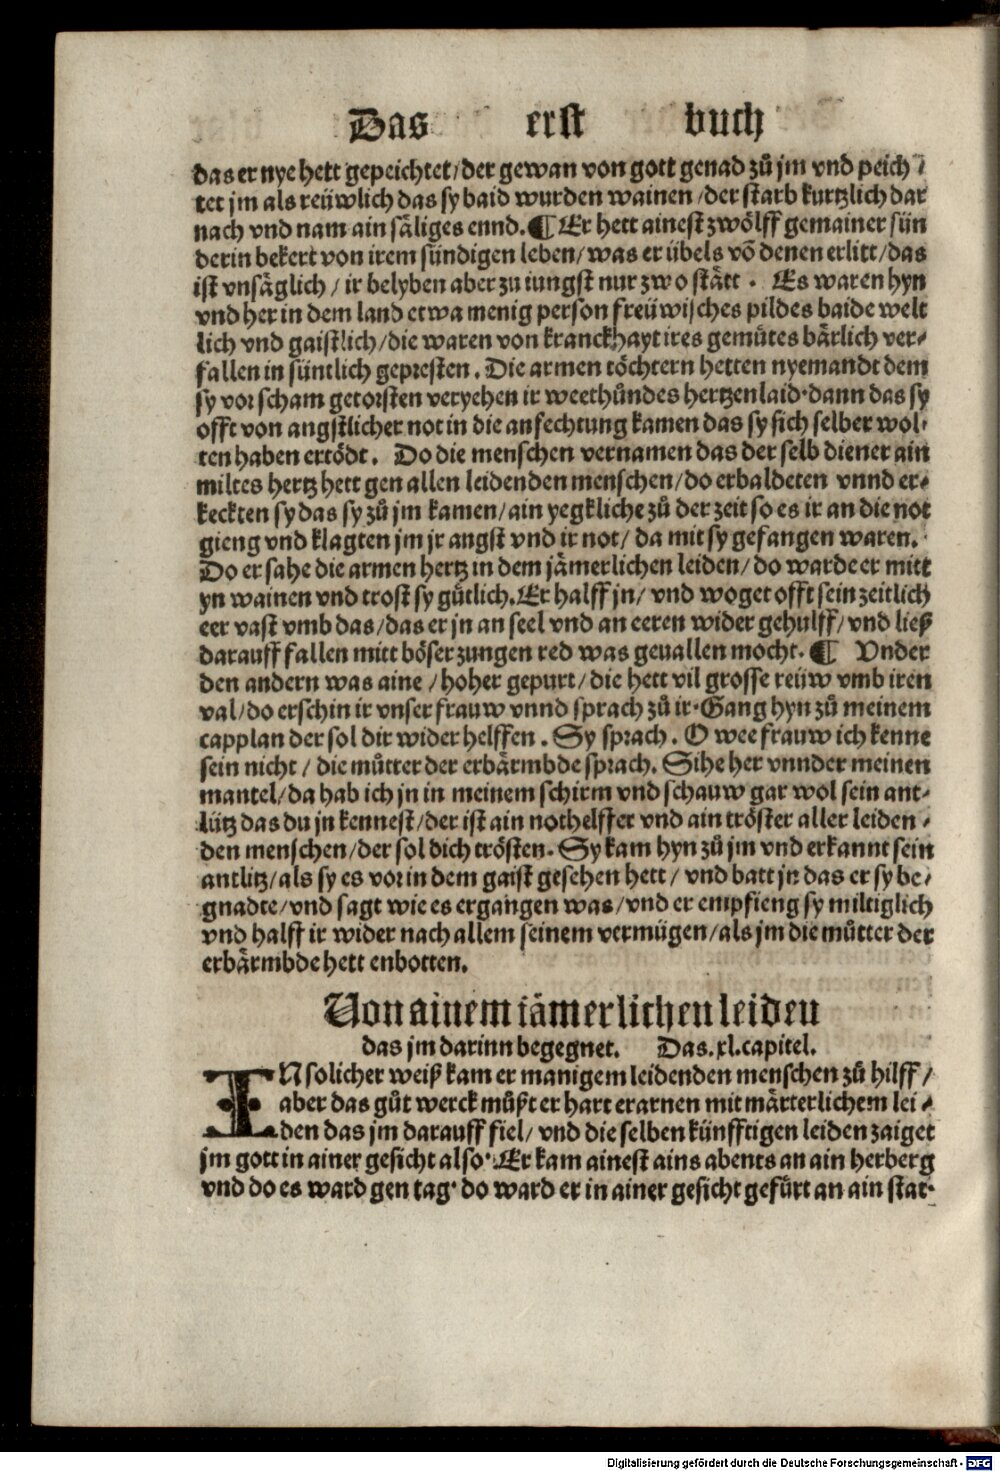 Das erst buch
das er nye hett gepeichtet/der gewan von gott genad zů jm vnd peich/
tet jm als reüwlich das sy baid wurden wainen/der starb kurtzlich dar
nach vnd nam ain säliges ennd.¶ Er hett ainest zwölff gemainer sün
derin bekert von irem sündigen leben/was er übels võ denen erlitt/das
ist vnsäglich/ir belyben aber zu iungst nur zwo stätt. Es waren hyn
vnd her in dem land etwa menig person freüwisches pildes baide welt
lich vnd gaistlich/die waren von kranckhayt ires gemůtes bärlich ver-
fallen in süntlich gepresten. Die armen töchtern hetten nyemandt dem
sy vor scham getorsten veryehen ir weethůndes hertzenlaid·dann das sy
offt von angstlicher not in die anfechtung kamen das sy sich selber wol-
ten haben ertödt. Do die menschen vernamen das der selb diener ain
miltes hertz hett gen allen leidenden menschen/do erbaldeten vnnd er-
keckten sy das sy zů jm kamen/ain yegkliche zů der zeit so es ir an die not
gieng vnd klagten jm jr angst vnd ir not/da mit sy gefangen waren.
Do er sahe die armen hertz in dem jämerlichen leiden/do warde er mitt
yn wainen vnd trost sy gůtlich.Er halff jn/vnd woget offt sein zeitlich
eer vast vmb das/das er jn an seel vnd an eeren wider gehulff/vnd ließ
darauff fallen mitt böser zungen red was geuallen mocht.¶ Vnder
den andern was aine/hoher gepurt/die hett vil grosse reüw vmb iren
val/do erschin ir vnser frauw vnnd sprach zů ir·Gang hyn zů meinem
capplan der sol dir wider helffen. Sy sprach. O wee frauw ich kenne
sein nicht/die můtter der erbärmbde sprach. Sihe her vnnder meinen
mantel/da hab ich jn in meinem schirm vnd schauw gar wol sein ant-
lütz das du jn kennest/der ist ain nothelffer vnd ain tröster aller leiden-
den menschen/der sol dich trösten. Sy kam hyn zů jm vnd erkannt sein
antlitz/als sy es vor in dem gaist gesehen hett/vnd batt jn das er sy be-
gnadte/vnd sagt wie es ergangen was/vnd er empfieng sy miltiglich
vnd halff ir wider nach allem seinem vermügen/als jm die můtter der
erbärmbde hett enbotten.
Von ainem iämerlichen leiden
das jm darinn begegnet. Das.xl.capitel.
IN solicher weiß kam er manigem leidenden menschen zů hilff/
aber das gůt werck můßt er hart erarnen mit märterlichem lei-
den das jm darauff fiel/vnd die selben künfftigen leiden zaiget
jm gott in ainer gesicht also·Er kam ainest ains abents an ain herberg
vnd do es ward gen tag·do ward er in ainer gesicht gefürt an ain stat·
Digitalisierung gefördert durch die Deutsche Forschungsgemeinschaft - DFG